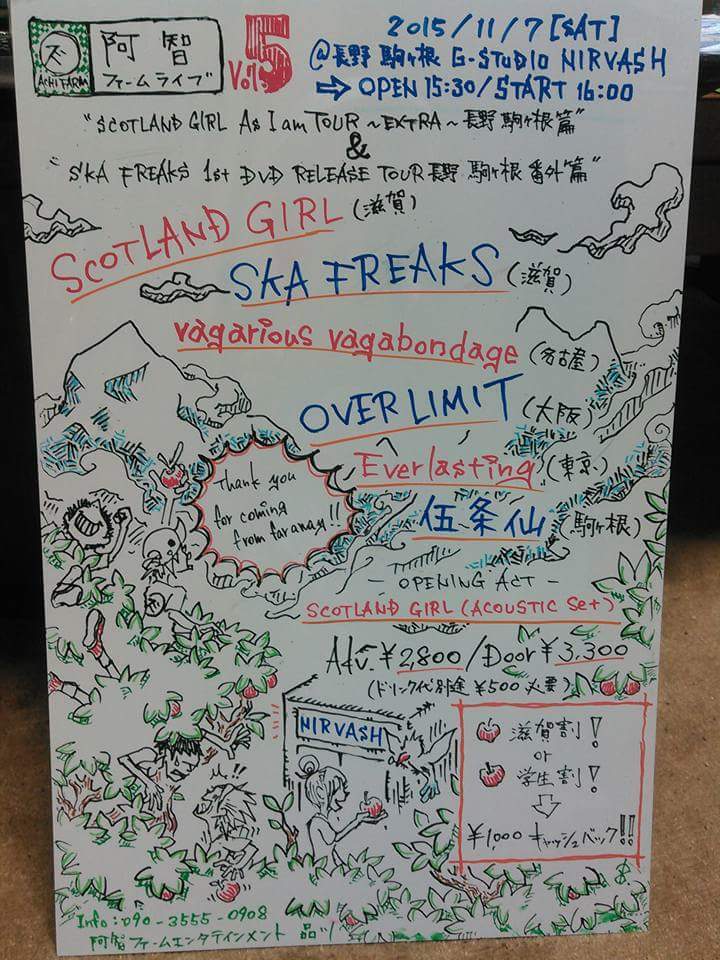 阿智
ファームライブ
ACHI FARM
Vol.5
2015/11/7[SAT]
@長野 駒ヶ根 G-STUDIO NIRVASH
⇨ OPEN 15:30/START 16:00
"SCOTLAND GIRL As I am TOUR ~EXTRA~ 長野 駒ヶ根篇"
&
"SKA FREAKS 1st DVD RELEASE TOUR 長野 駒ヶ根 番外篇"
SCOTLAND GIRL (滋賀)
SKA FREAKS (滋賀)
vagarious vagabondage (名古屋)
OVER LIMIT (大阪)
Everlasting (東京)
伍条仙 (駒ヶ根)
Thank you
for coming
from faraway!!
- OPENING ACT -
SCOTLAND GIRL (ACOUSTIC Set)
Adv. ¥2,800/Door ¥3,300
(ドリンク代別途 ¥500 必要)
NIRVASH
滋賀割!
or
学生割!
⇩
¥1,000 キャッシュバック!!
Info: 090-3555-0908
阿智ファームエンタテインメント